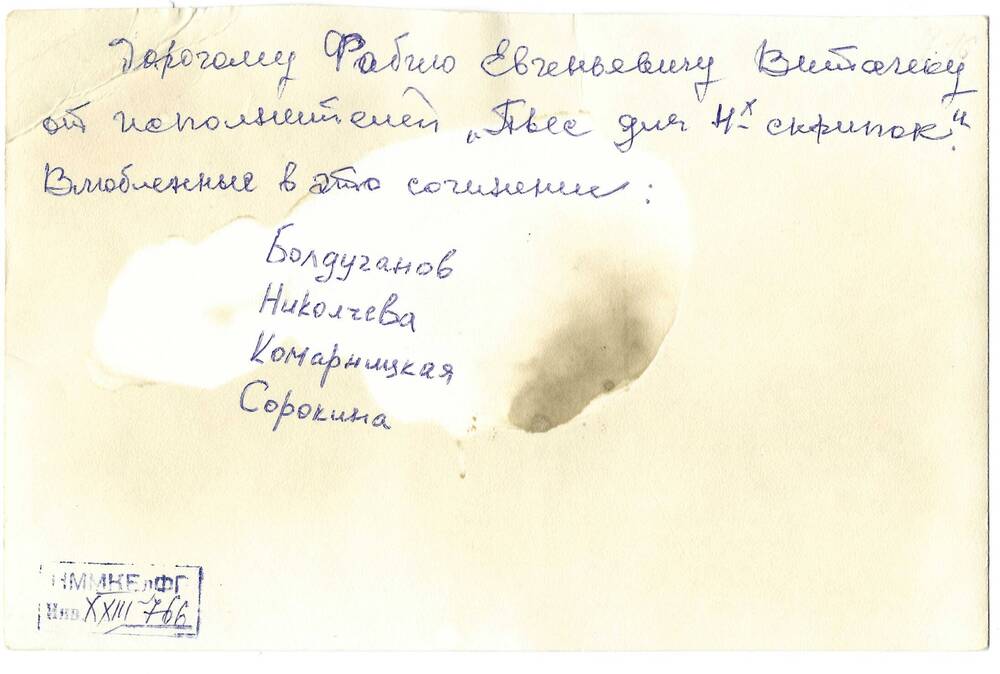 Дорогому Фабию Евгеньевичу Витачеку
от исполнителей „Пьес для 4-х скрипок“.
Влюбленные в это сочинение:
Болдуганов
Николчева
Комарницкая
Сорокина
НММКЕлФГ
Инв. XXIII-766